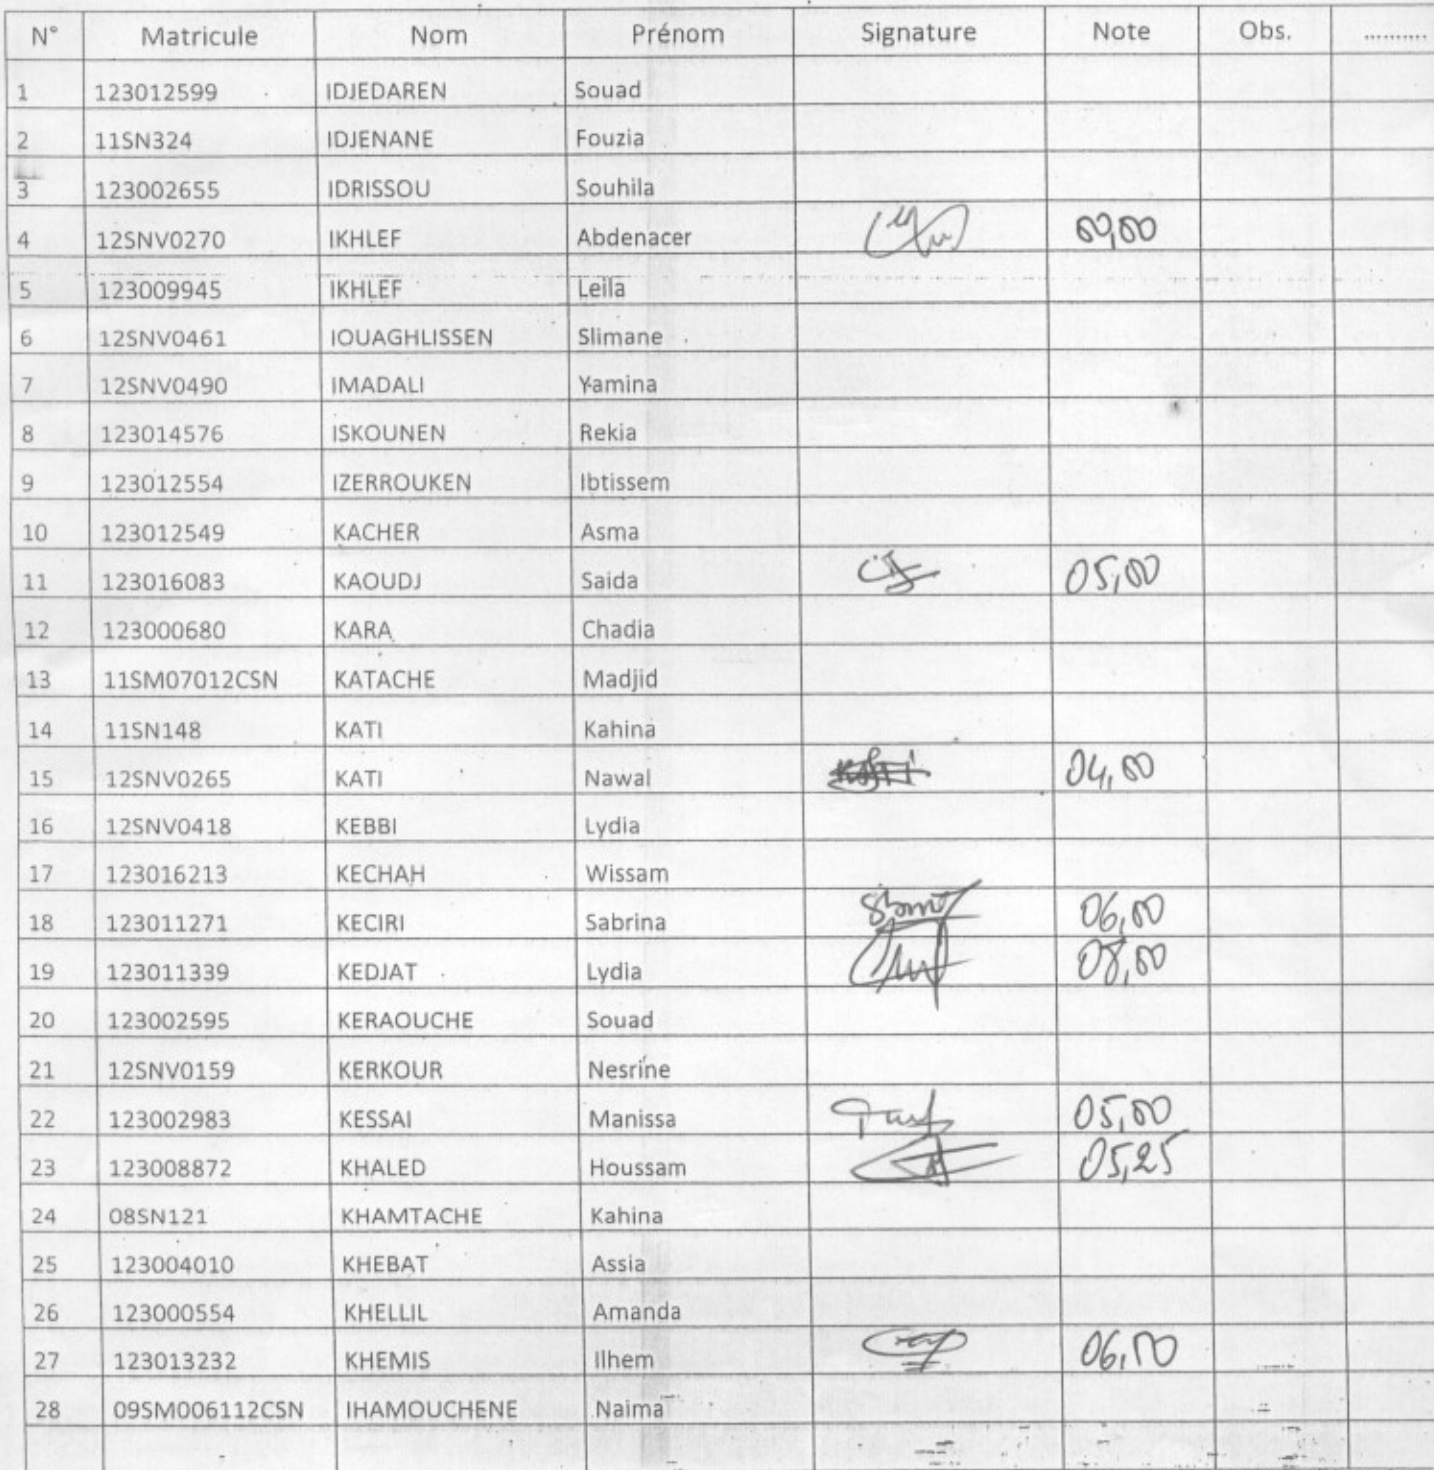 N° Matricule Nom Prénom Signature Note Obs. ..........
1 123012599 IDJEDAREN Souad
2 11SN324 IDJENANE Fouzia
3 123002655 IDRISSOU Souhila
4 12SNV0270 IKHLEF Abdenacer 00,00
5 123009945 IKHLEF Leila
6 12SNV0461 IOUAGHLISSEN Slimane
7 12SNV0490 IMADALI Yamina
8 123014576 ISKOUNEN Rekia
9 123012554 IZERROUKEN Ibtissem
10 123012549 KACHER Asma
11 123016083 KAOUDJ Saida 05,00
12 123000680 KARA Chadia
13 11SM07012CSN KATACHE Madjid
14 11SN148 KATI Kahina
15 12SNV0265 KATI Nawal 04,00
16 12SNV0418 KEBBI Lydia
17 123016213 KECHAH Wissam
18 123011271 KECIRI Sabrina 06,00
19 123011339 KEDJAT Lydia 08,00
20 123002595 KERAOUCHE Souad
21 12SNV0159 KERKOUR Nesrine
22 123002983 KESSAI Manissa 05,00
23 123008872 KHALED Houssam 05,25
24 08SN121 KHAMTACHE Kahina
25 123004010 KHEBAT Assia
26 123000554 KHELLIL Amanda
27 123013232 KHEMIS Ilhem 06,00
28 09SM006112CSN IHAMOUCHENE Naima